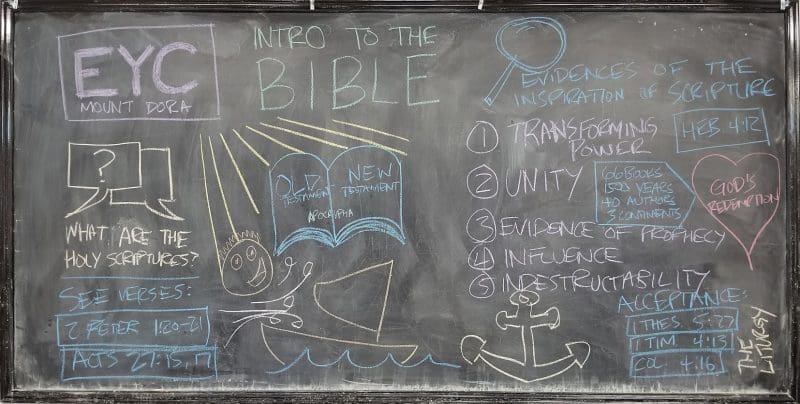 EYC
MOUNT DORA
INTRO TO THE
BIBLE
?
WHAT ARE THE
HOLY SCRIPTURES?
SEE VERSES:
2 PETER 1:20-21
ACTS 27:15, 17
OLD
TESTAMENT
NEW
TESTAMENT
APOCRYPHA
EVIDENCES OF THE
INSPIRATION OF SCRIPTURE
1 TRANSFORMING
POWER
HEB 4:12
2 UNITY
66 BOOKS
1500 YEARS
40 AUTHORS
3 CONTINENTS
GOD'S
REDEMPTION
3 EVIDENCE OF PROPHECY
4 INFLUENCE
5 INDESTRUCTABILITY
ACCEPTANCE:
1 THES 5:27
1 TIM 4:13
COL 4:16
THE
LITURGY